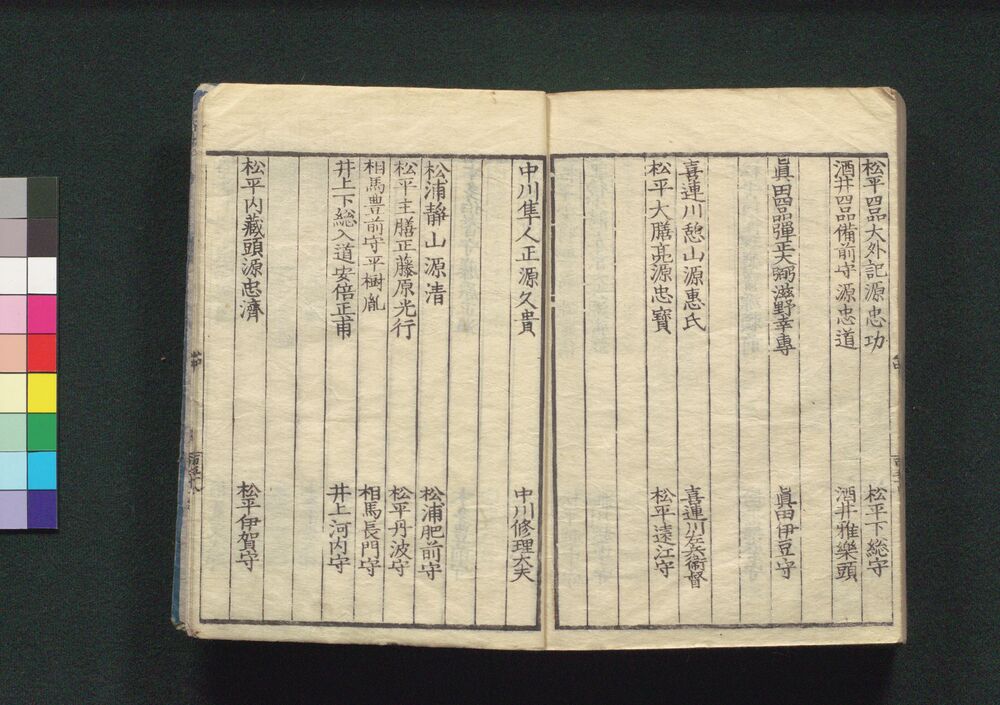 松平四品大外記源忠功 松平下総守
酒井四品備前守源忠道 酒井雅樂頭
眞田四品彈正大弼滋野幸專 眞田伊豆守
喜連川憩山源惠氏 喜連川左兵衛督
松平大膳亮源忠寶 松平遠江守
中川隼人正源久貴 中川修理大夫
松浦靜山源清 松浦肥前守
松平主膳正藤原光行 松平丹波守
相馬豊前守平樹胤 相馬長門守
井上下総入道安倍正甫 井上河内守
松平内藏頭源忠濟 松平伊賀守